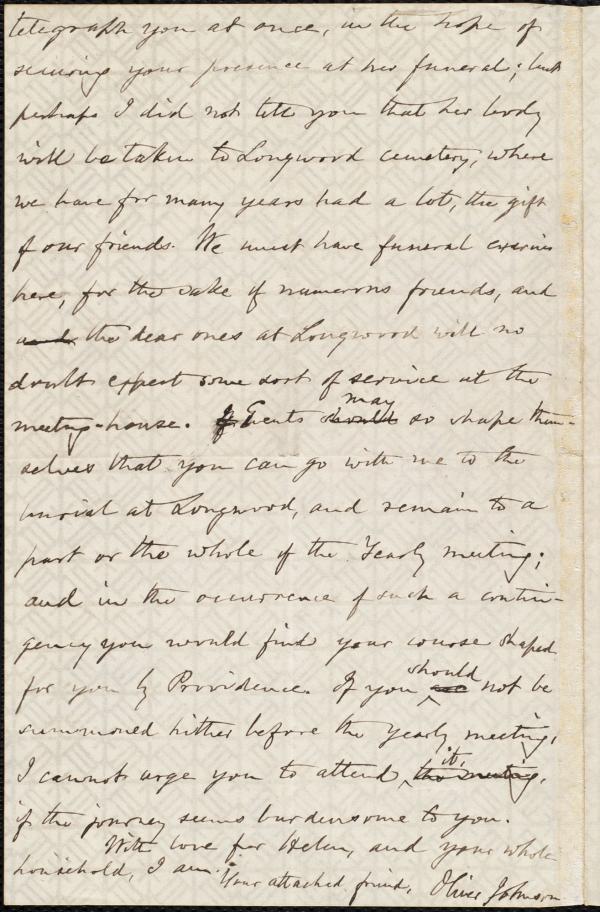 telegraph you at once, in the hope of
securing your presence at her funeral; but
perhaps I did not tell you that her body
will be taken to Longwood cemetery, where
we have for many years had a lot, the gift
of our friends. We must have funeral exercises
here, for the sake of numerous friends, and
and the dear ones at Longwood will no
doubt expect some sort of service at the
meeting-house. If Events should may so shape them-
selves that you can go with me to the
burial at Longwood, and remain to a
part or the whole of the Yearly meeting;
and in the occurrence of such a contin-
gency you would find your course shaped
for you by Providence. If you should not be
summoned hither before the Yearly meeting,
I cannot urge you to attend the meeting it,
if the journey seems burdensome to you.
With love for Helen, and your whole
household, I am
Your attached friend, Oliver Johnson